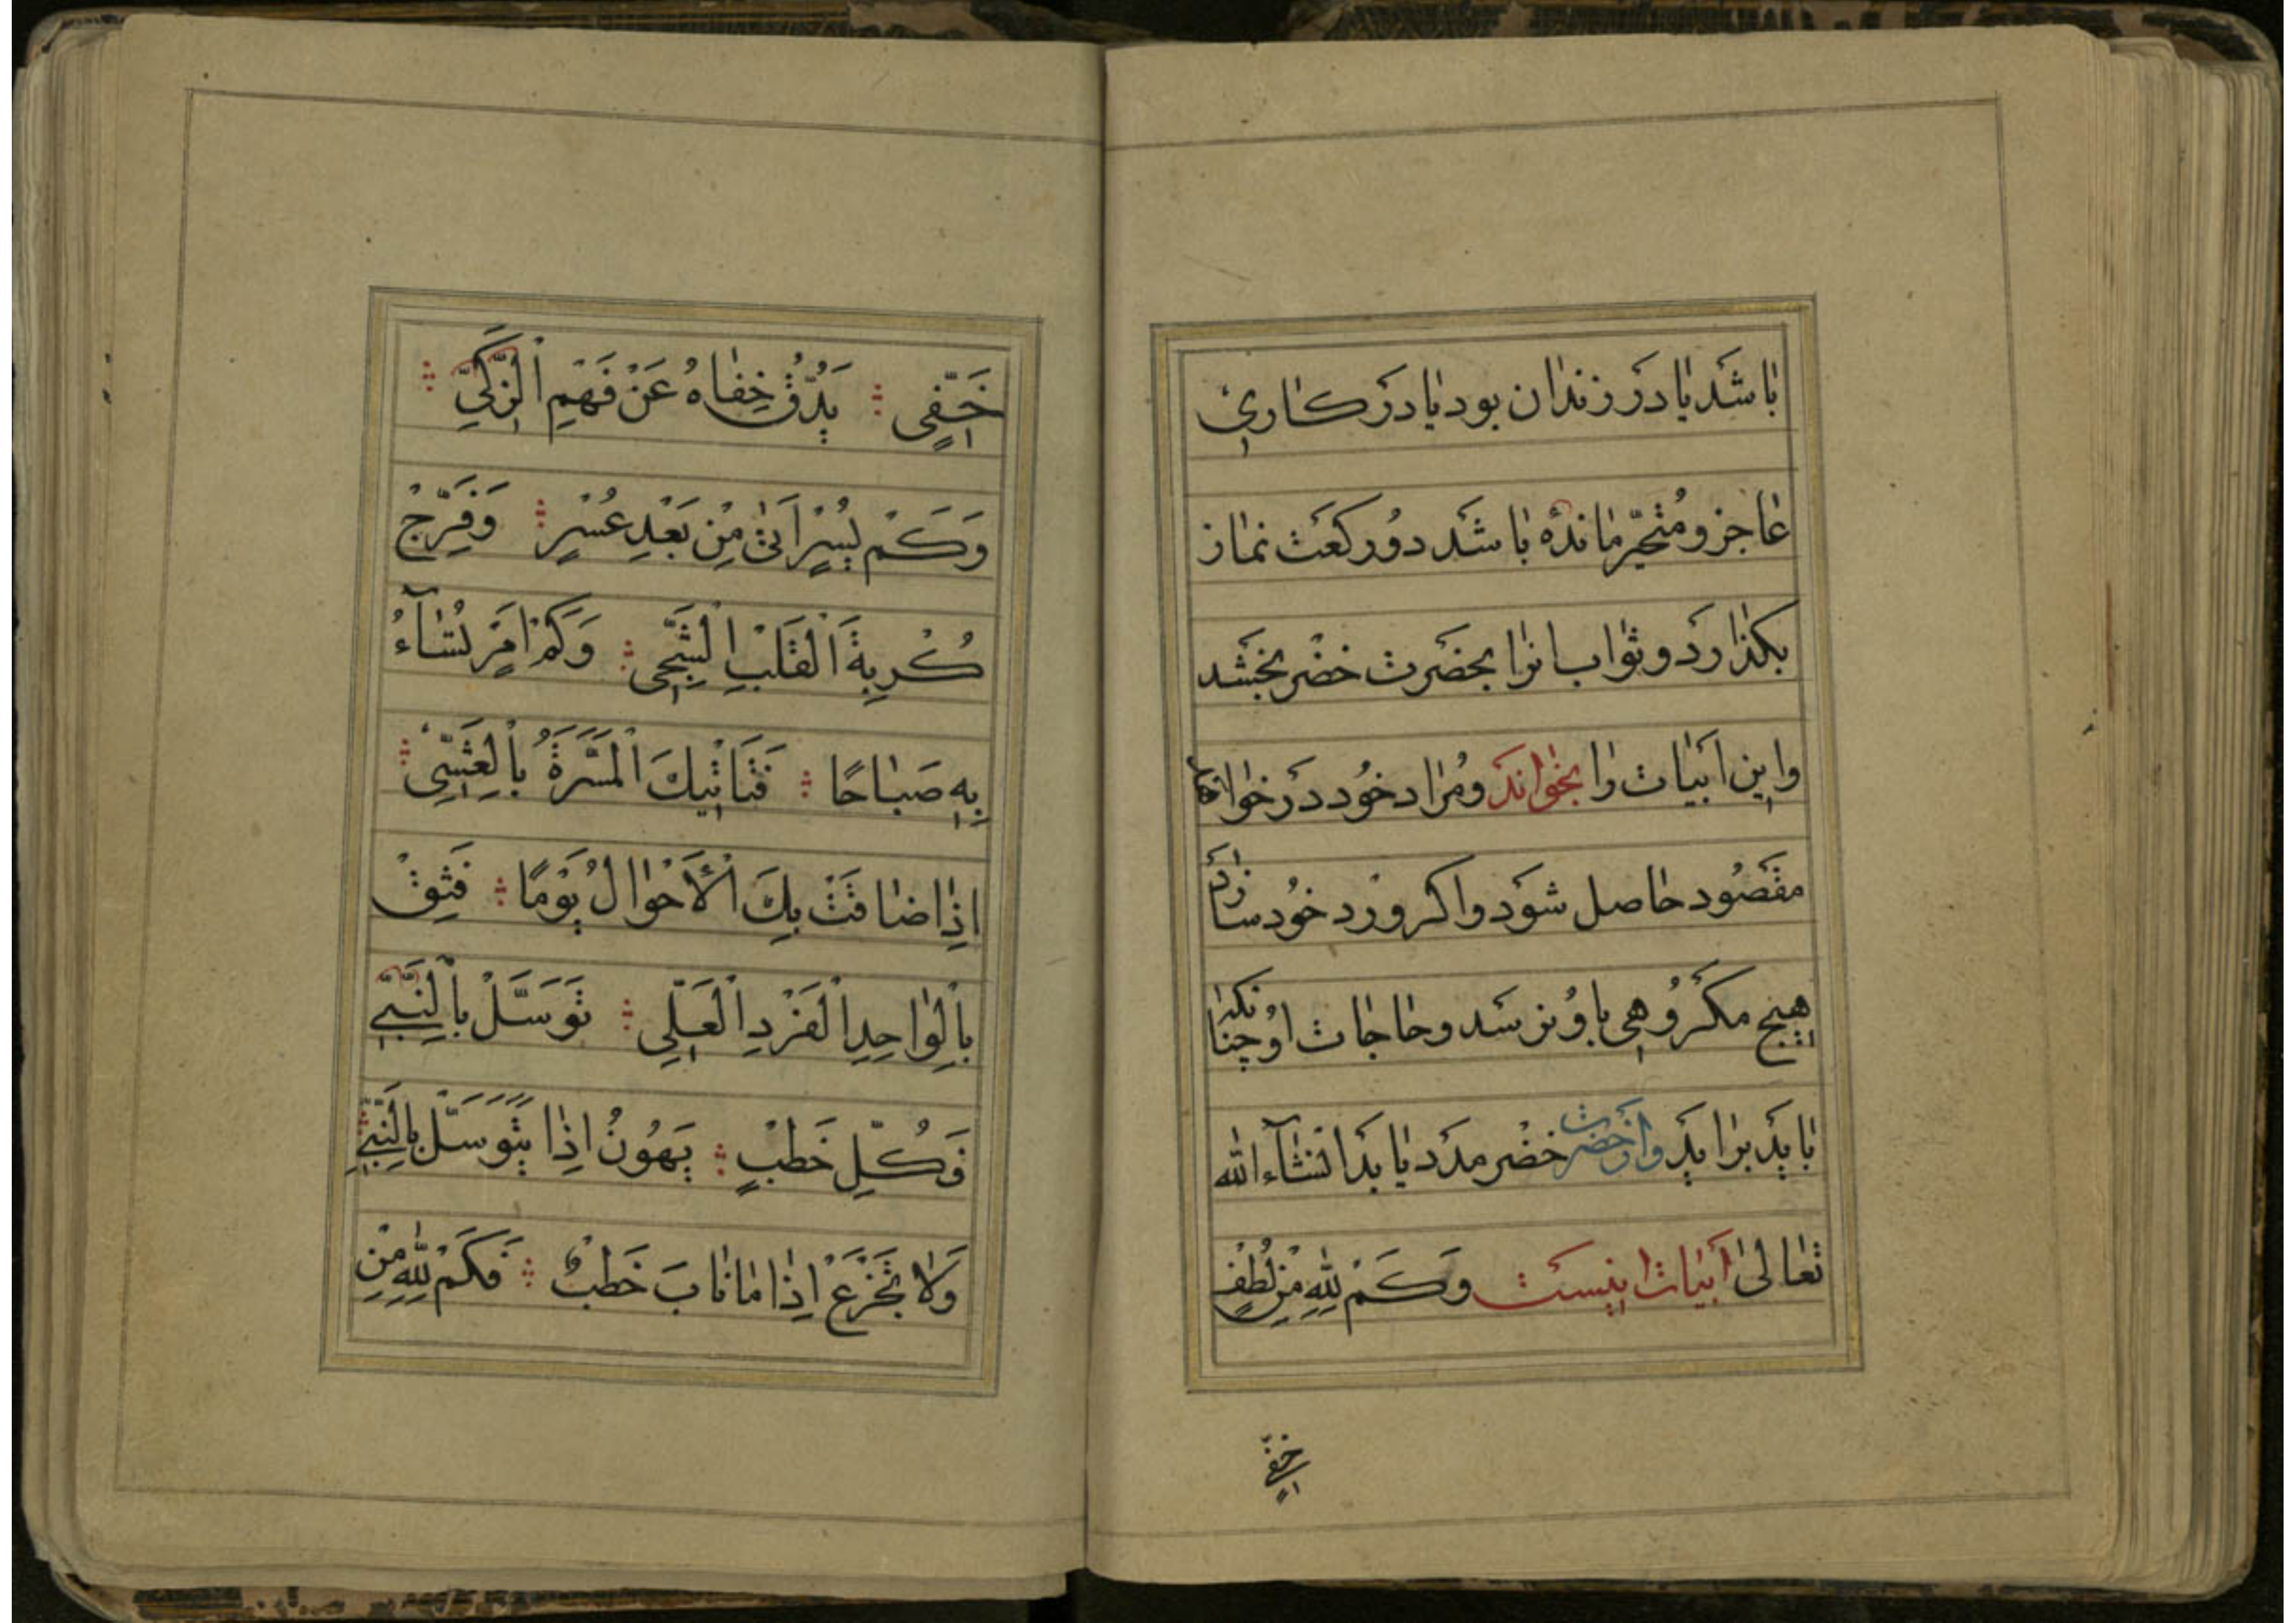 باشَد یا دَر زندان بود یا دَر کاری
عاجز و مُتحیّر مانده باشَد دوُرکعَت نماز
بکذارَد و ثواب انرا بحضَرت خضْر بخشَد
و این اَبیات را بخوانَد و مُراد خوُد دَرخواهَد
مقصُود حاصل شوَد و اکر وِرْد خوُد سازَد
هیچ مکرُوهی باوُ نرسَد و حاجات اوُ چنانکه
بایَد برایَد و از حضرَت خضْر مدَد یابَد انشآء الله
تعالیٰ اَبیات اینسَت وَكَمْ لِلّٰهِ مِنْ لُطْفٍ
خَفِیّ
خَفِّیٍ ؞ یَدُّقُ خِفٰاهُ عَنْ فَهْمِ الزَّکِیِّ ؞
وَکَمْ یُسْرٍ اَتیٰ مِنْ بَعْدِ عُسْرٍ ؞ وَفَرَّجْ
کُرْبةَ الْقَلْبِ الشَّجِّی ؞ وَکَمْ اَمْرٍ تُسٰآءُ
بِهِ صَبٰاحًا ؞ فَتَاتیكَ الْمَسَّرَةُ بِالْعَشِّیِ ؞
اِذٰا ضٰاقَتْ بِكَ الْاَحْوٰالُ یَوْمًا ؞ فَثِقْ
بِالْوٰاحِدِ الْفَرْدِ الْعَلِّی ؞ تَوَسَّلْ بِالنَّبِّیِ
فَکُلِّ خَطْبٍ ؞ یَهُونُ اِذٰا تَوَسَّلَ بِالنَّبِیِّ ؞
وَلٰا تَجْزَعْ اِذٰا مٰا نٰابَ خَطْبٌ ؞ فَکَمْ لِلّٰهِ مِنْ